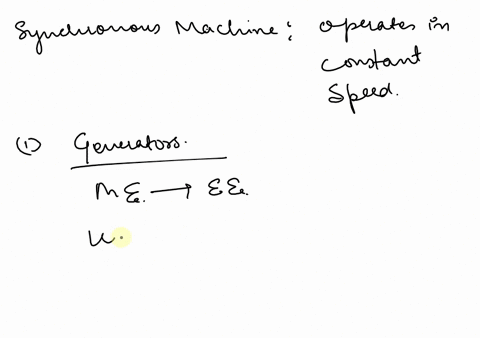 Synchronous Machine: operates in
constant
speed.
(1) Generators.
M E. → E E.